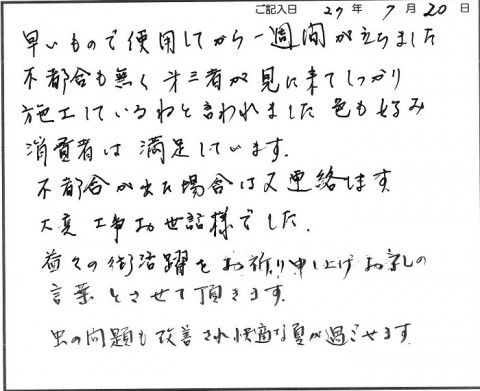 ご記入日 27年 7月 20日
早いもので使用してから一週間が立ちました
不都合も無く 才三者が見に来てしっかり
施工しているねと言われました 色も好み
消費者は満足しています。
不都合が出た場合は又連絡します
大変工事お世話様でした。
益々の御活躍をお祈り申し上げお礼の
言葉とさせて頂きます。
虫の問題も改善され快適な夏が過ごせます